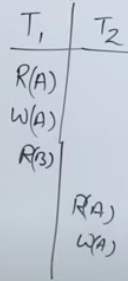 T₁ T₂
R(A)
W(A)
R(B)
R(A)
W(A)